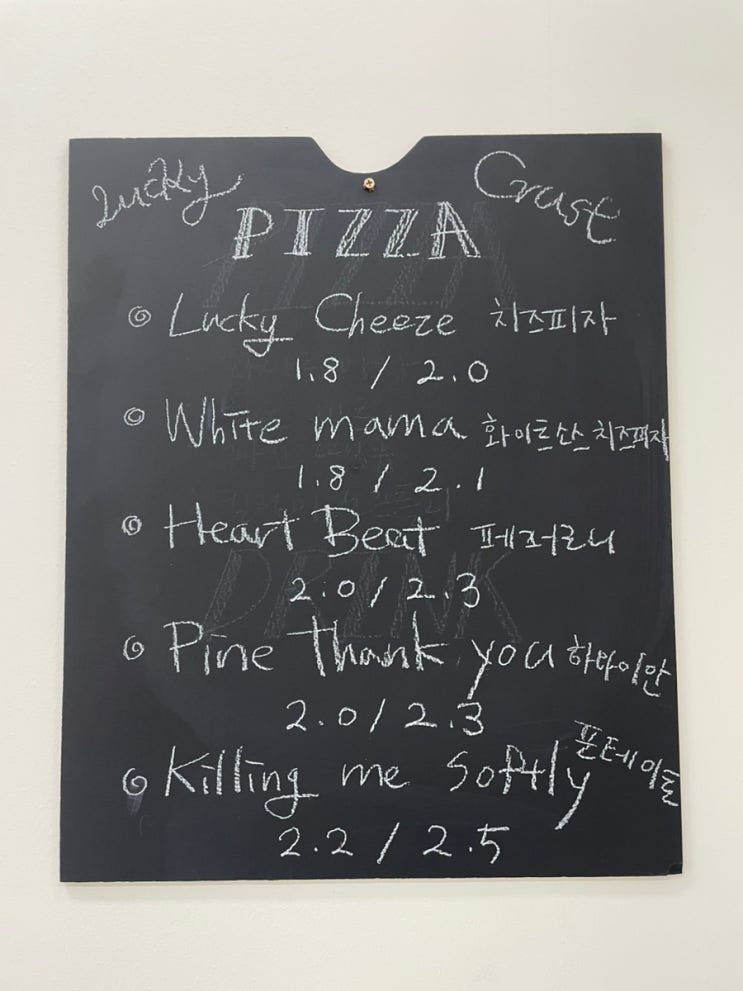 Lucky Crust
PIZZA
Lucky Cheeze 치즈피자
1.8 / 2.0
White mama 화이트소스 치즈피자
1.8 / 2.1
Heart Beat 페퍼로니
2.0 / 2.3
Pine Thank you 하와이안
2.0 / 2.3
Killing me Softly 포테이토
2.2 / 2.5